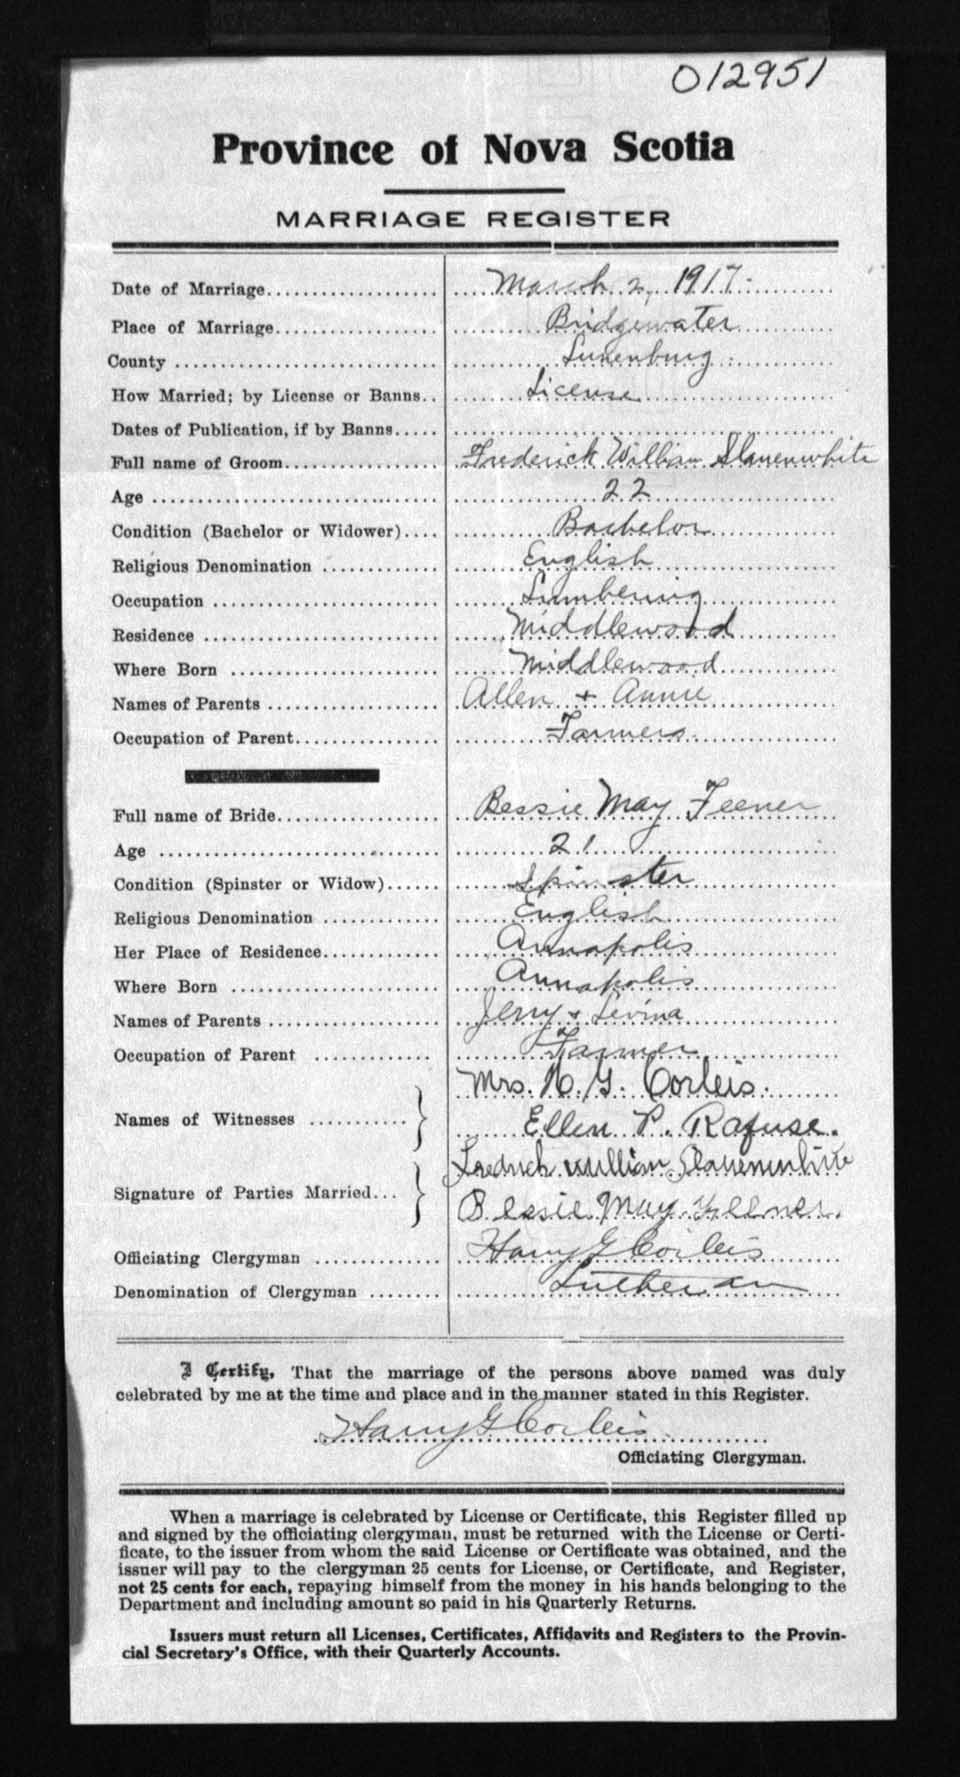 012951
Province of Nova Scotia
MARRIAGE REGISTER
Date of Marriage.................... March 2, 1917.
Place of Marriage.................. Bridgewater
County .............................. Lunenburg.
How Married; by License or Banns.. License
Dates of Publication, if by Banns.....
Full name of Groom.................. Frederick William Slauenwhite
Age ................................. 22
Condition (Bachelor or Widower).... Bachelor
Religious Denomination ............. English
Occupation .......................... Lumbering
Residence ........................... Middlewood
Where Born ........................ Middlewood
Names of Parents .................... Allen + Annie
Occupation of Parent................. Farmers
Full name of Bride................... Bessie May Feener
Age ................................ 21
Condition (Spinster or Widow)...... Spinster
Religious Denomination .............. English
Her Place of Residence.............. Annapolis
Where Born ......................... Annapolis
Names of Parents .................... Jerry + Levina
Occupation of Parent .............. Farmer
Mrs. H. G. Corleis.
Names of Witnesses ...........
Ellen P. Rafuse.
Fredrick William Slauenwhite
Signature of Parties Married...
Bessie May Feener.
Officiating Clergyman ............... Harry G Corleis
Denomination of Clergyman ........ Lutheran
I Certify, That the marriage of the persons above named was duly
celebrated by me at the time and place and in the manner stated in this Register.
Harry G Corleis
Officiating Clergyman.
When a marriage is celebrated by License or Certificate, this Register filled up
and signed by the officiating clergyman, must be returned with the License or Certi-
ficate, to the issuer from whom the said License or Certificate was obtained, and the
issuer will pay to the clergyman 25 cents for License, or Certificate, and Register,
not 25 cents for each, repaying himself from the money in his hands belonging to the
Department and including amount so paid in his Quarterly Returns.
Issuers must return all Licenses, Certificates, Affidavits and Registers to the Provin-
cial Secretary's Office, with their Quarterly Accounts.